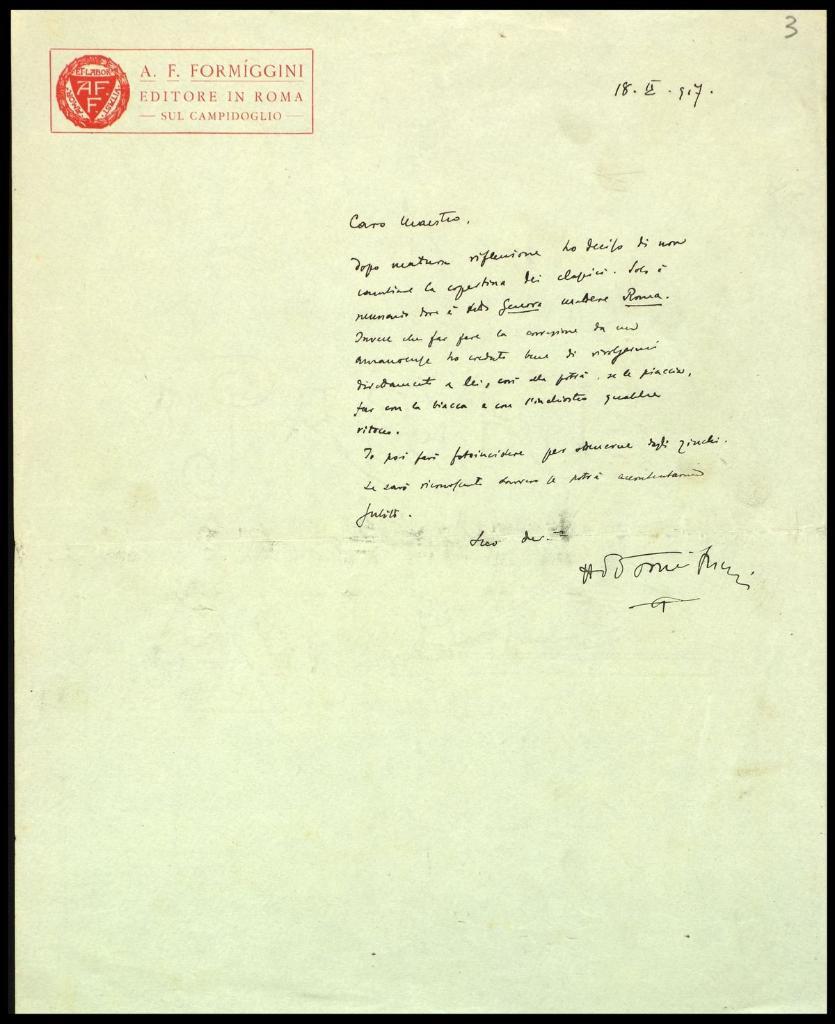 3
A. F. FORMÍGGINI
EDITORE IN ROMA
— SUL CAMPIDOGLIO —
AFF
18. II. 917.
Caro Maestro,
Dopo matura riflessione ho deciso di non
cambiare la copertina dei classici. Solo è
necessario dove è detto Genova mettere Roma.
Invece che far fare la correzione da un
amanuense ho creduto bene di rivolgermi
direttamente a lei, così ella potrà, se le piaccia,
far con la biacca e con l'inchiostro qualche
ritocco.
Io poi farò fotoincidere per ottenerne degli zinchi.
Le sarò riconoscente davvero se potrà accontentarmi
subito.
Suo dev.